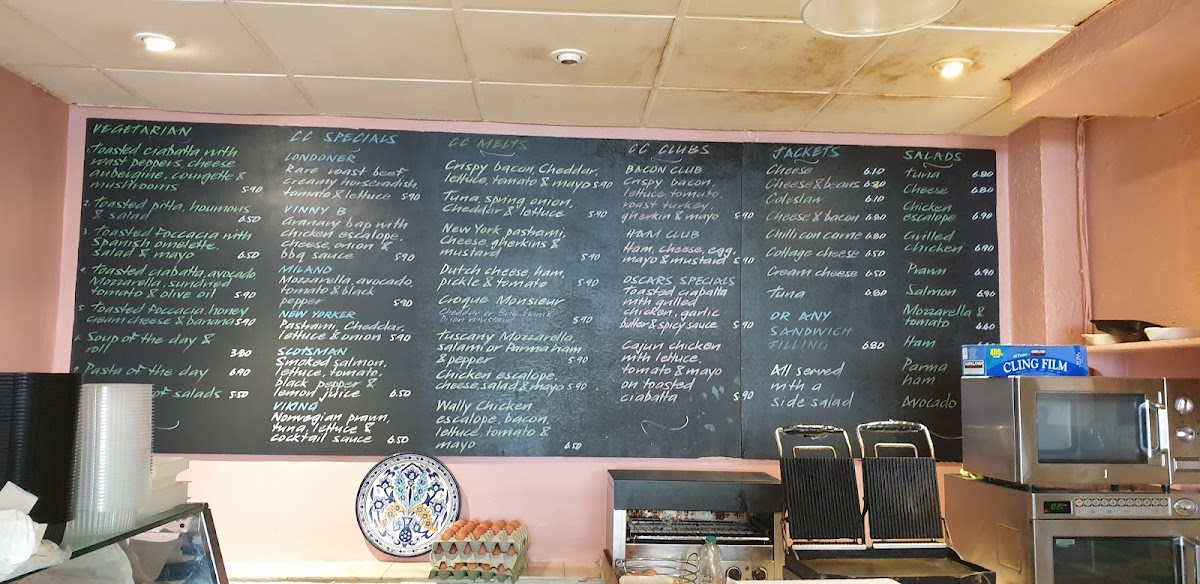 VEGETARIAN
1. Toasted ciabatta with
roast peppers, cheese
aubergine, courgette &
mushrooms 5.90
2. Toasted pitta, houmous
& salad 6.50
3. Toasted foccacia with
Spanish omelette,
salad & mayo 6.50
4. Toasted ciabatta, avocado
Mozzarella, sundried
tomato & olive oil 5.90
5. Toasted foccacia, honey
cream cheese & banana 5.90
6. Soup of the day &
roll 3.80
7. Pasta of the day 6.90
of salads 5.50
CC SPECIALS
LONDONER
Rare roast beef,
creamy horseradish,
tomato & lettuce 5.90
VINNY B
Granary bap with
chicken escalope,
cheese, onion &
bbq sauce 5.90
MILANO
Mozzarella, avocado,
tomato & black
pepper 5.90
NEW YORKER
Pastrami, Cheddar,
lettuce & onion 5.90
SCOTSMAN
Smoked salmon,
lettuce, tomato,
black pepper &
lemon juice 6.50
VIKING
Norwegian prawn,
tuna, lettuce &
cocktail sauce 6.50
CC MELTS
Crispy bacon Cheddar,
lettuce, tomato & mayo 5.90
Tuna, spring onion,
Cheddar & lettuce 5.90
New York pastrami,
Cheese, gherkins &
mustard 5.90
Dutch cheese, ham,
pickle & tomato 5.90
Croque Monsieur
Cheddar or Brie, ham &
Dijon mustard 5.90
Tuscany Mozzarella,
salami or Parma ham
& pepper 5.90
Chicken escalope,
cheese, salad & mayo 5.90
Wally Chicken
escalope, bacon,
lettuce, tomato &
mayo 6.50
CC CLUBS
BACON CLUB
Crispy bacon,
lettuce, tomato,
roast turkey,
gherkin & mayo 5.90
HAM CLUB
Ham, cheese, egg,
mayo & mustard 5.90
OSCARS SPECIALS
Toasted ciabatta
with grilled
chicken, garlic
butter & spicy sauce 5.90
Cajun chicken
with lettuce,
tomato & mayo
on toasted
ciabatta 5.90
JACKETS
Cheese 6.10
Cheese & beans 6.30
Coleslaw 6.10
Cheese & bacon 6.80
Chilli con carne 6.80
Cottage cheese 6.50
Cream cheese 6.50
Tuna 6.80
OR ANY
SANDWICH
FILLING 6.80
All served
with a
side salad
SALADS
Tuna 6.80
Cheese 6.80
Chicken
escalope 6.90
Grilled
chicken 6.90
Prawn 6.90
Salmon 6.90
Mozzarella &
tomato 6.60
Ham
Parma
ham
Avocado
KIRKLAND
CLING FILM